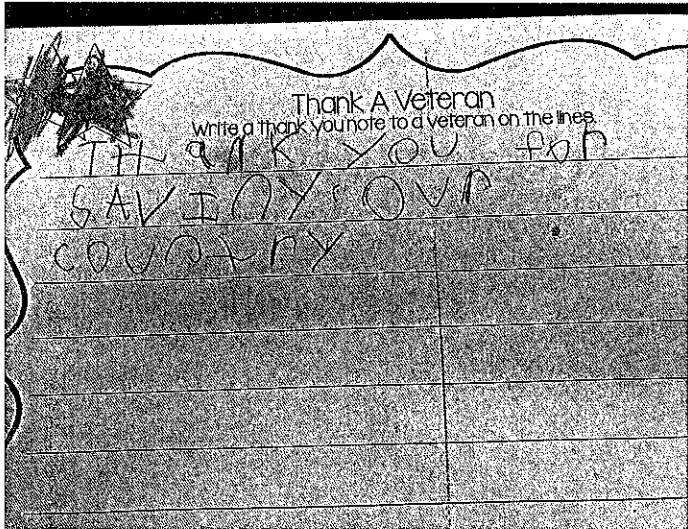 Thank A Veteran
Write a thank you note to a veteran on the lines.
THank YOU for
SAVINY OUr
COUntrY